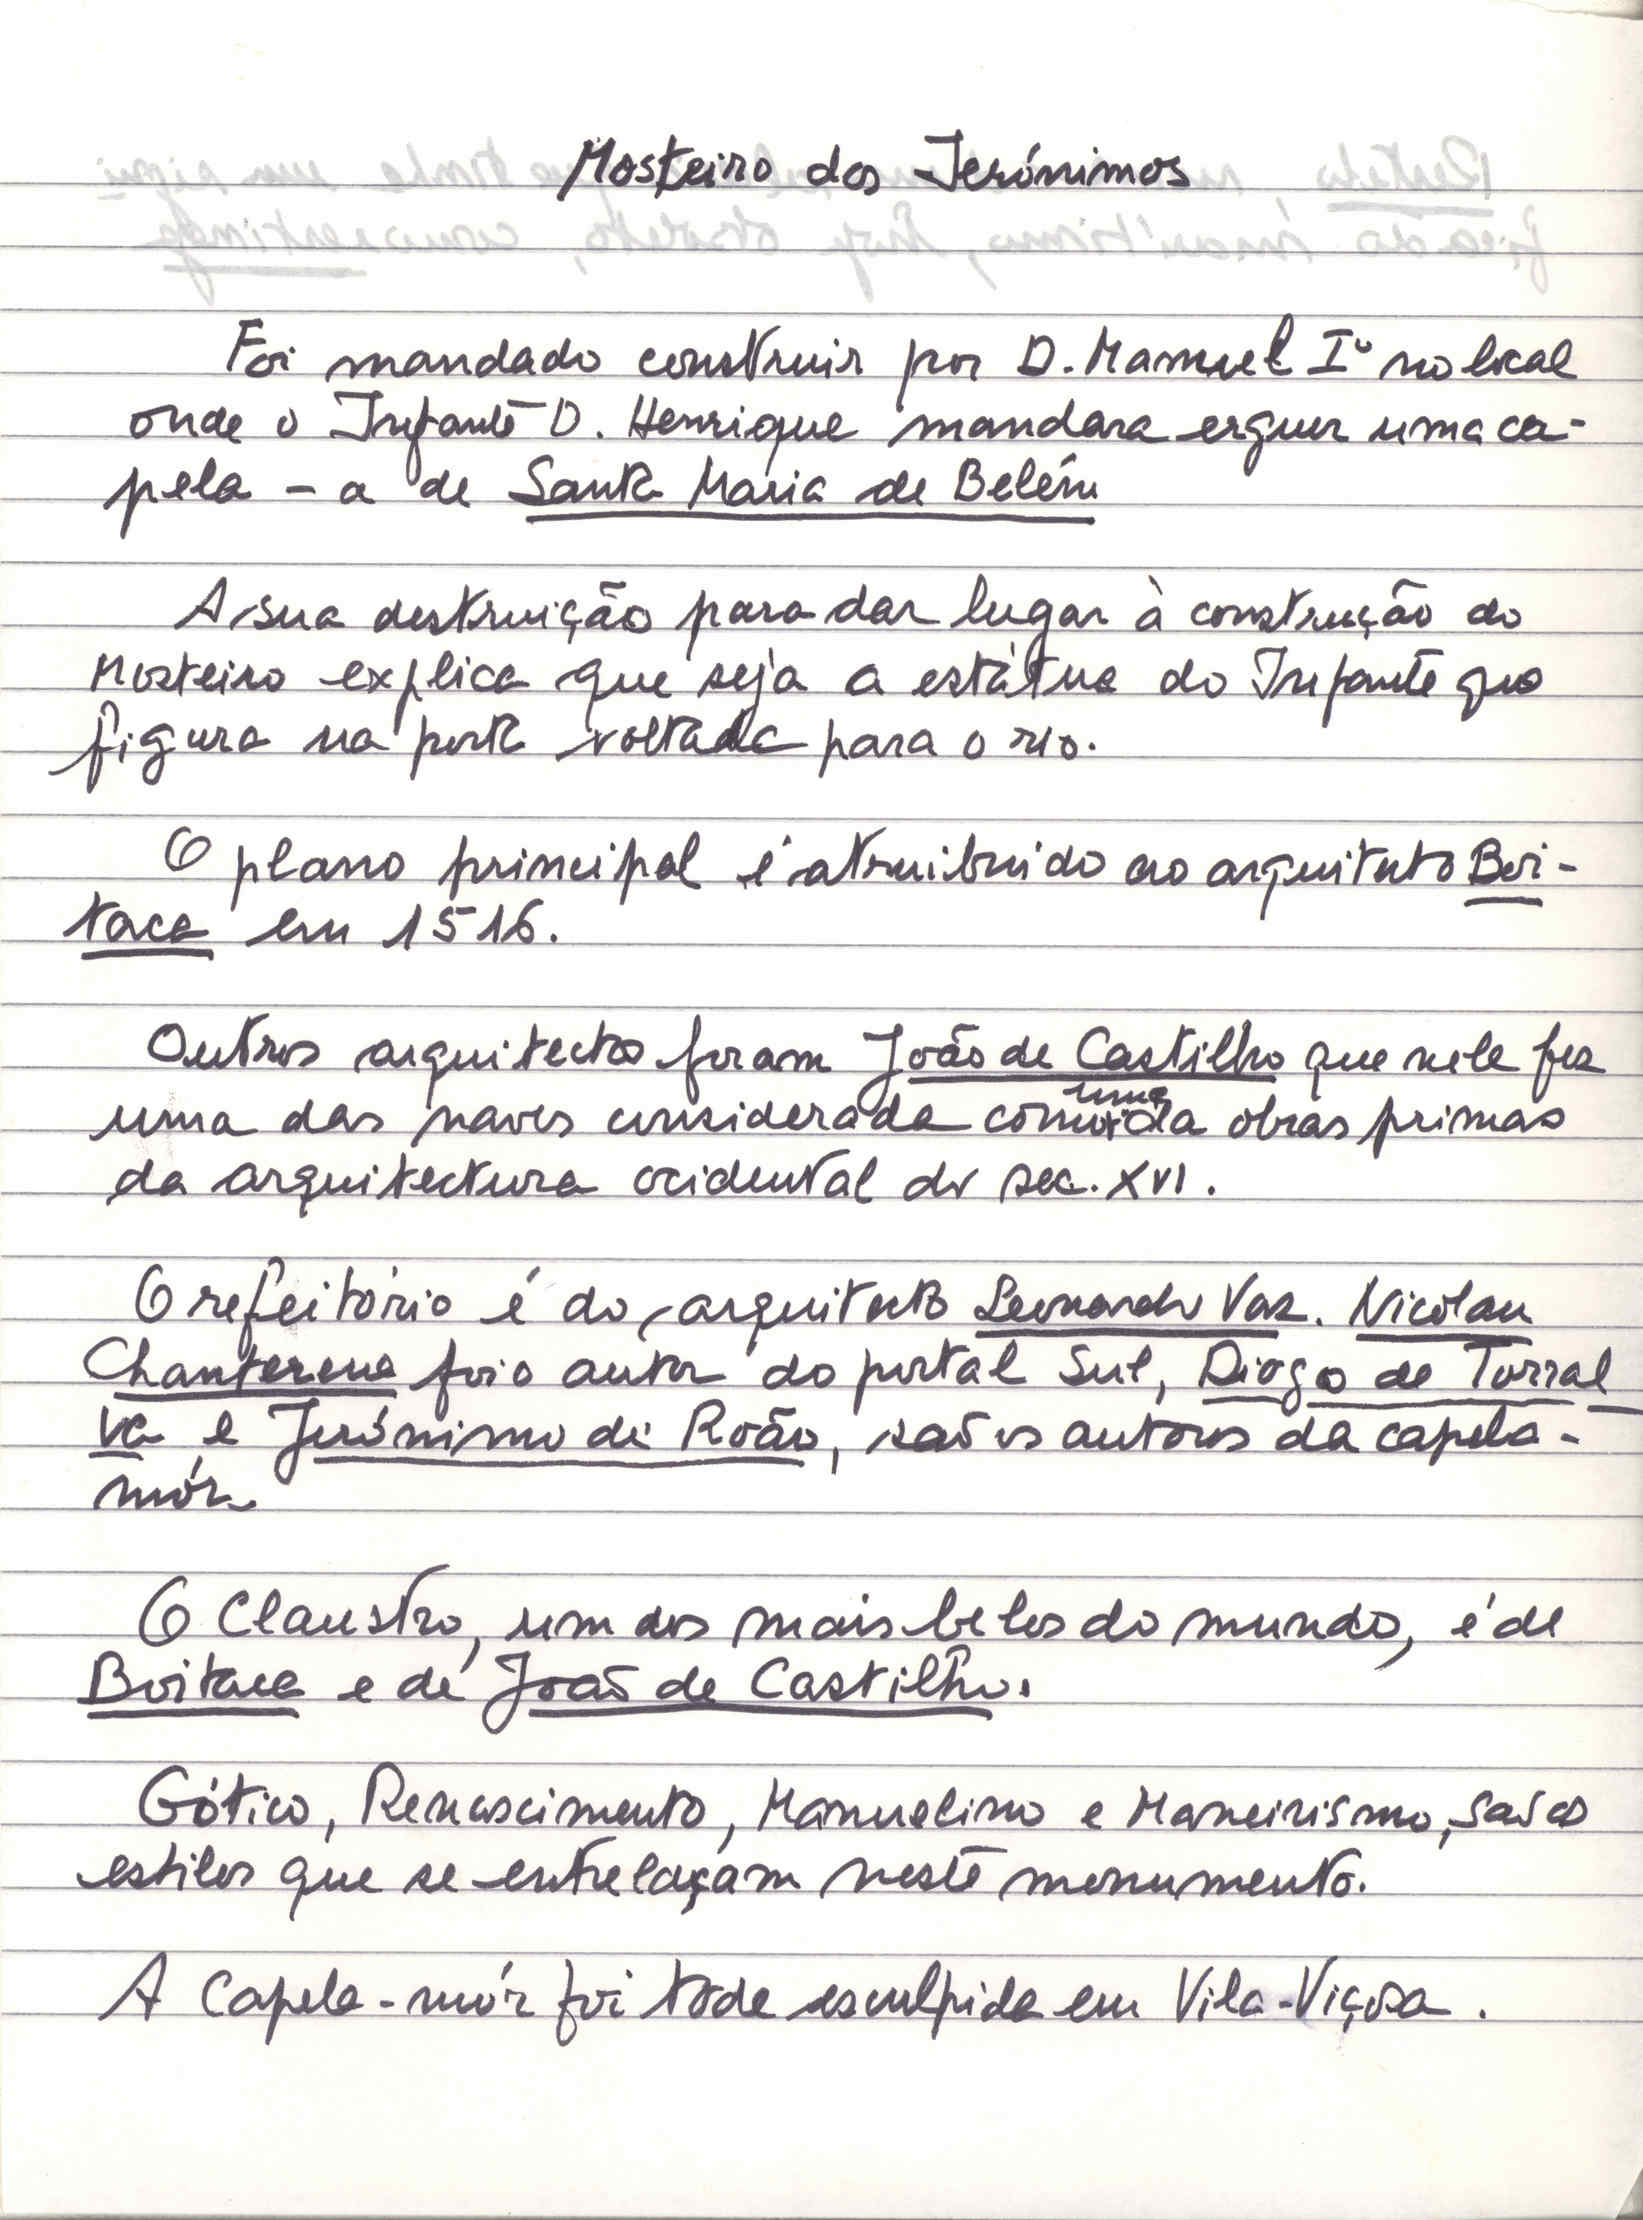 Mosteiro dos Jerónimos
Foi mandado construir por D. Manuel Iº no local
onde o Infante D. Henrique mandara erguer uma ca-
pela - a de Santa Maria de Belém
A sua destruição para dar lugar à construção do
Mosteiro explica que seja a estátua do Infante que
figura na porta voltada para o rio.
O plano principal é atruibuido ao arquitecto Boi-
taca em 1516.
Outros arquitectos foram João de Castilho que nele fez
uma das naves considerada como uma da obras primas
da arquitectura ocidental do sec. XVI.
O refeitório é do arquitecto Leonardo Vaz. Nicolau
Chanterene foi o autor do portal Sul, Diogo de Torral
va e Jerónimo de Roão, são os autores da capela-
mór.
O Claustro, um dos mais belos do mundo, é de
Boitaca e de João de Castilho.
Gótico, Renascimento, Manuelino e Maneirismo, são os
estilos que se entrelaçam neste monumento.
A Capela-mór foi toda esculpida em Vila-Viçosa.